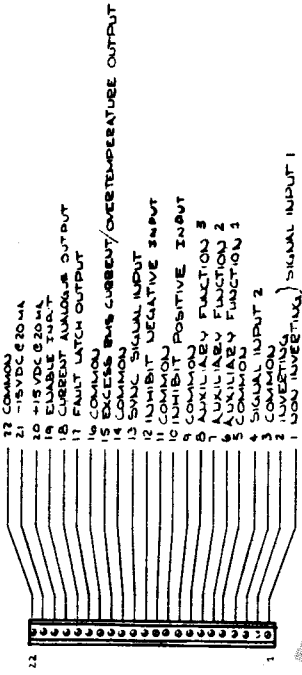 22 COMMON
21 -15VDC @ 20MA
20 +15VDC @ 20MA
19 ENABLE INPUT
18 CURRENT ANALOGUE OUTPUT
17 FAULT LATCH OUTPUT
16 COMMON
15 EXCESS RMS CURRENT/OVERTEMPERATURE OUTPUT
14 COMMON
13 SYNC SIGNAL INPUT
12 INHIBIT NEGATIVE INPUT
11 COMMON
10 INHIBIT POSITIVE INPUT
9 COMMON
8 AUXILIARY FUNCTION 3
7 AUXILIARY FUNCTION 2
6 AUXILIARY FUNCTION 1
5 COMMON
4 SIGNAL INPUT 2
3 COMMON
2 INVERTING
1 NON INVERTING } SIGNAL INPUT 1
22
1